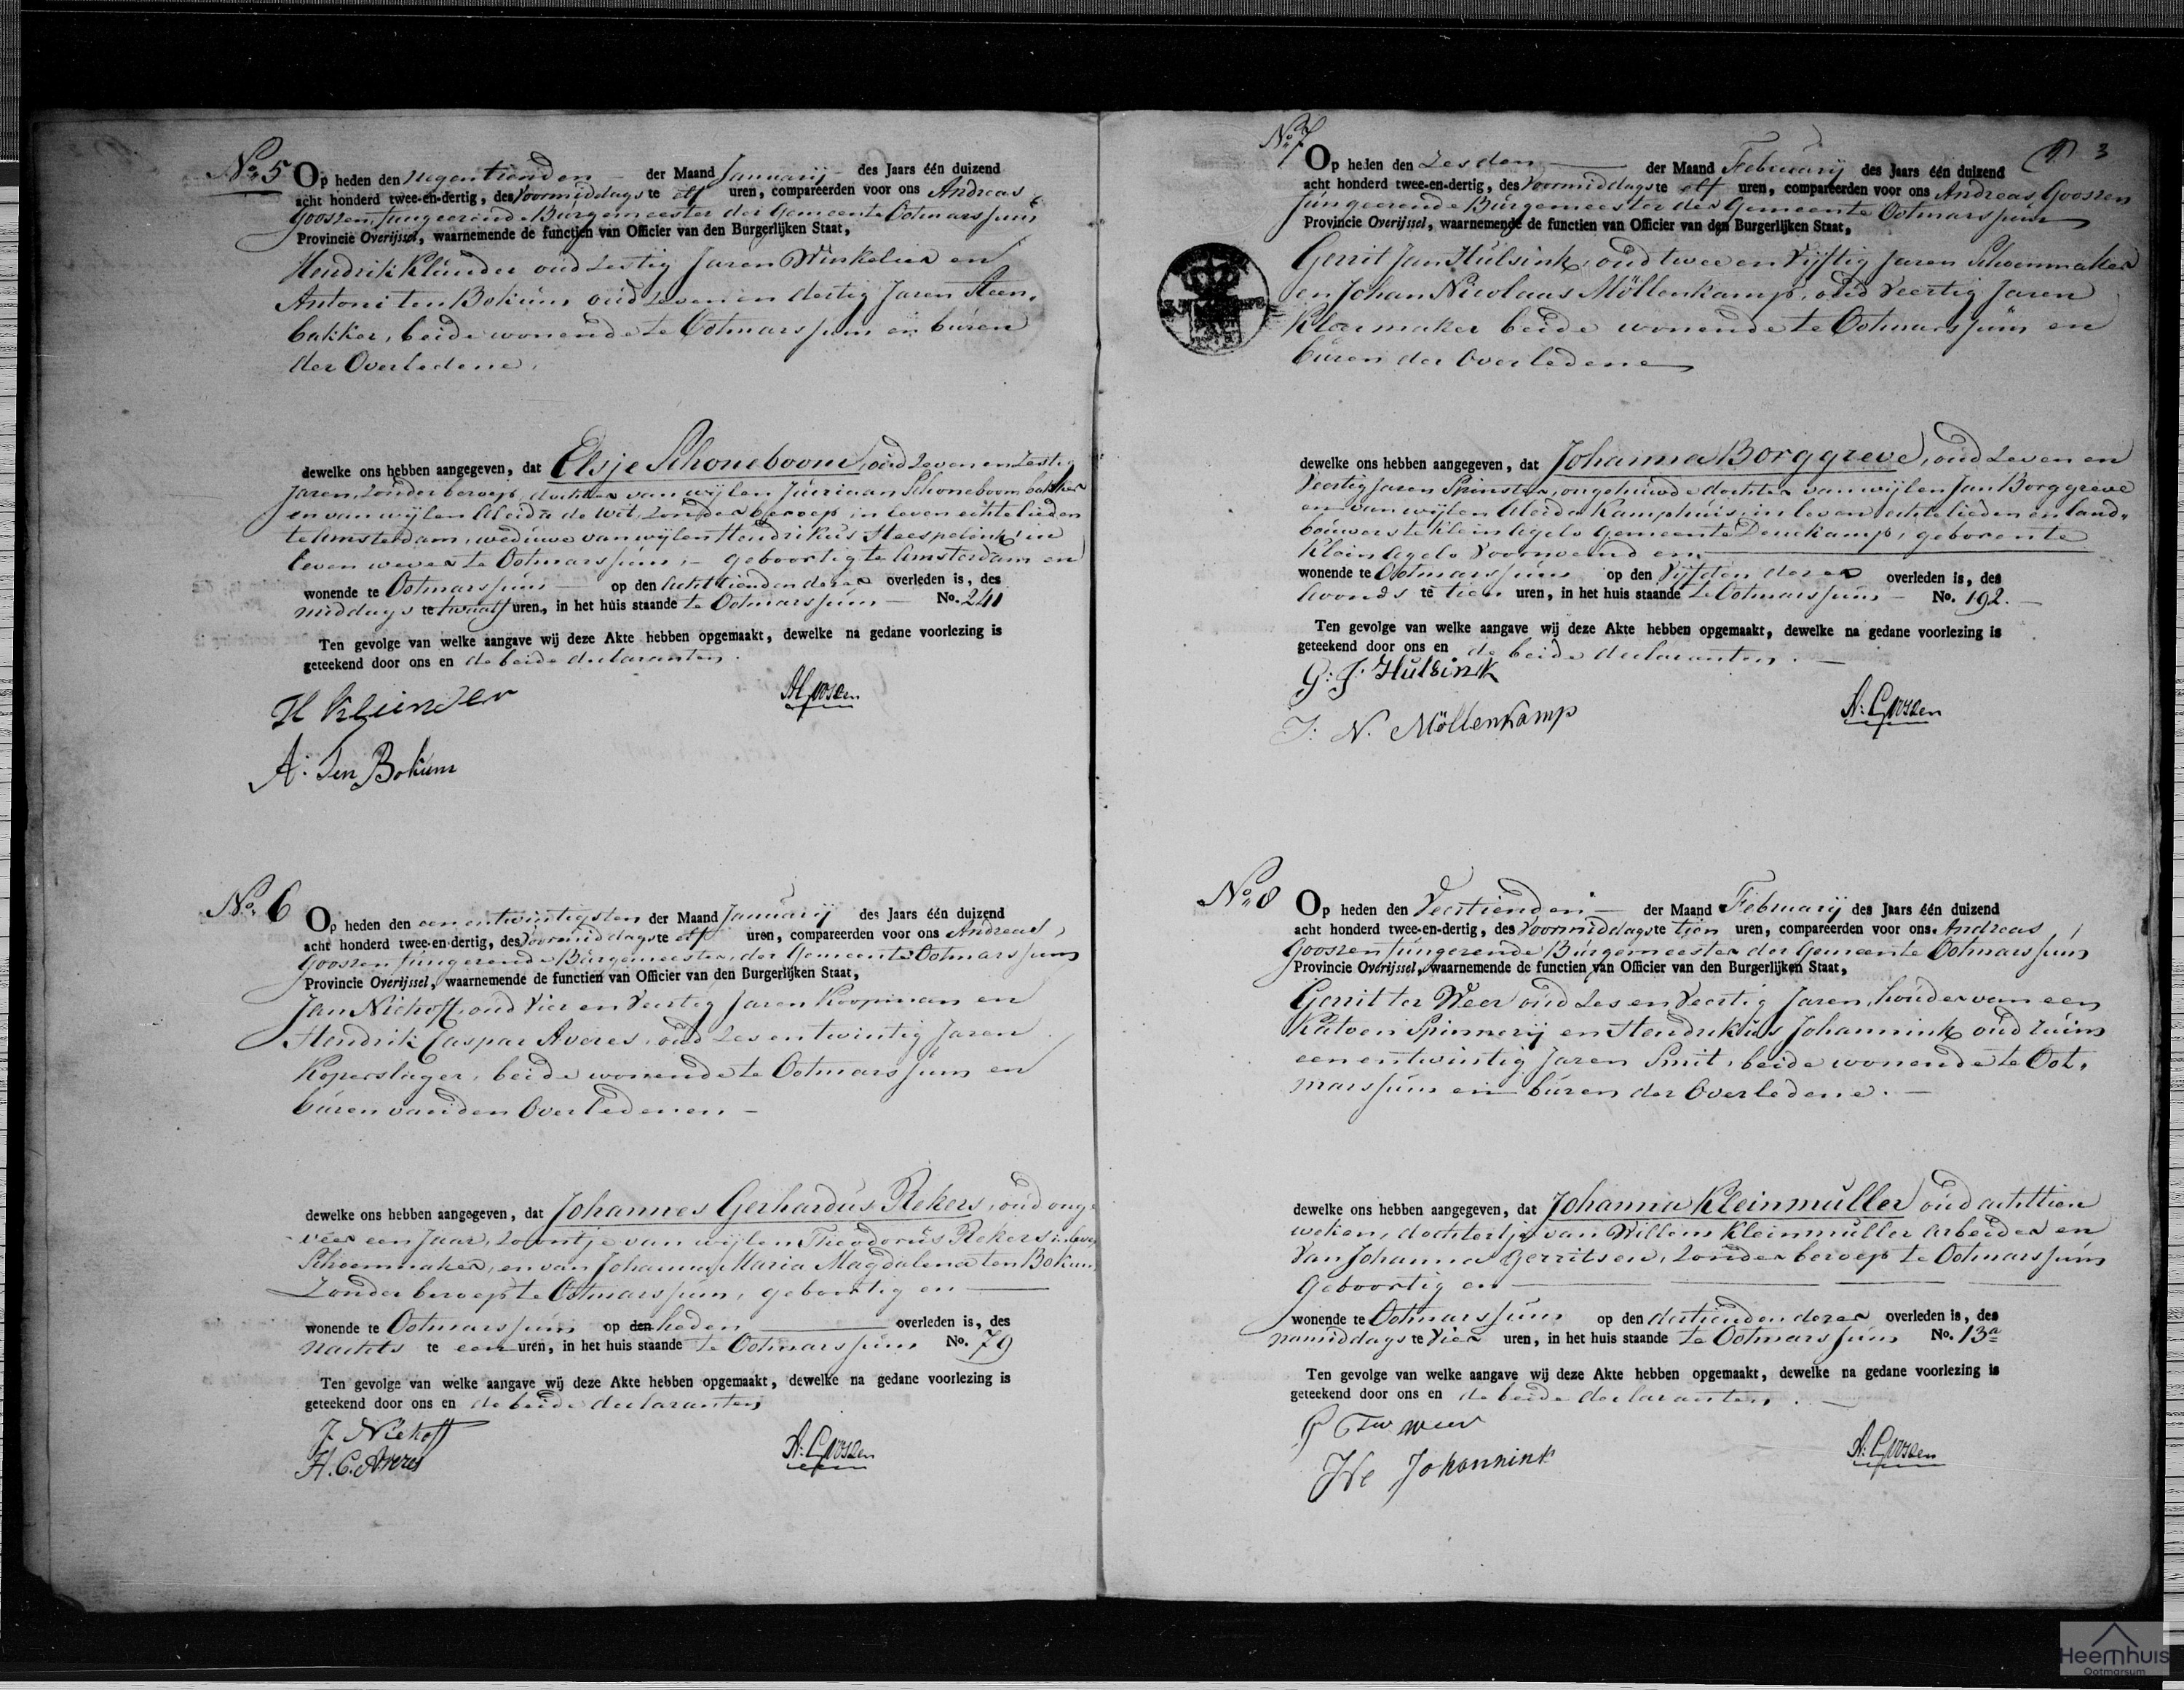 No. 5 Op heden den negentienden der Maand Januarij des Jaars één duizend
acht honderd twee-en-dertig, des Voormiddags te elf uren, compareerden voor ons Andreas
Goossen, fungeerende Burgemeester der Gemeente Ootmarssum
Provincie Overijssel, waarnemende de functien van Officier van den Burgerlijken Staat,
Hendrik Klünder oud Zestig Jaren Winkelier en
Antoni ten Bokum oud Zeven en dertig Jaren Steen-
bakker, beide wonende te Ootmarssum en buren
der Overledene.
dewelke ons hebben aangegeven, dat Elsje Schoneboom, oud Zeven en Zestig
Jaren, Zonder beroep, dochter van wijlen Jurriaan Schoneboom bakker
en van wijlen Aleida de Wit, Zonder beroep, in leven echtelieden
te Amsterdam, weduwe van wijlen Hendrikus Heespelink, in
leven wever te Ootmarssum, geboortig te Amsterdam en
wonende te Ootmarssum op den Achttienden dezer overleden is, des
middags te twaalf uren, in het huis staande te Ootmarssum No. 241
Ten gevolge van welke aangave wij deze Akte hebben opgemaakt, dewelke na gedane voorlezing is
geteekend door ons en de beide declaranten.
H Klunder
A Goosen
A: Ten Bokum
No. 6 Op heden den een en twintigsten der Maand Januarij des Jaars één duizend
acht honderd twee-en-dertig, des Voormiddags te elf uren, compareerden voor ons Andreas
Goossen fungerende Burgemeester der Gemeente Ootmarssum
Provincie Overijssel, waarnemende de functien van Officier van den Burgerlijken Staat,
Jan Niehoff, oud Vier en Veertig Jaren Koopman en
Hendrik Caspar Averes, oud Zes en twintig Jaren
Koperslager, beide wonende te Ootmarssum en
buren van den Overledenen.
dewelke ons hebben aangegeven, dat Johannes Gerhardus Rekers, oud onge-
veer een Jaar, Zoontje van wijlen Theodorus Rekers in leven
Schoenmaker, en van Johanna Maria Magdalena ten Bokum,
Zonder beroep te Ootmarssum, geboortig en
wonende te Ootmarssum op den heden overleden is, des
nachts te een uren, in het huis staande te Ootmarssum No. 79
Ten gevolge van welke aangave wij deze Akte hebben opgemaakt, dewelke na gedane voorlezing is
geteekend door ons en de beide declaranten
J. Niehoff
H. C. Averes
A: Goosen
3
No. 7 Op heden den Zesden der Maand Februarij des Jaars één duizend
acht honderd twee-en-dertig, des Voormiddags te elf uren, compareerden voor ons Andreas Goossen
fungeerende Burgemeester der Gemeente Ootmarssum
Provincie Overijssel, waarnemende de functien van Officier van den Burgerlijken Staat,
Gerrit Jan Hulsink, oud twee en Vijftig Jaren Schoenmaker
en Johan Nicolaas Möllenkamp, oud Veertig Jaren
Kleermaker beide wonende te Ootmarssum en
buren der Overledene
dewelke ons hebben aangegeven, dat Johanna Borggreve, oud Zeven en
Veertig Jaren Spinster, ongehuwde dochter van wijlen Jan Borggreve
en van wijlen Aleida Kamphuis, in leven echtelieden en land-
bouwers te Klein Agelo Gemeente Denekamp, geboren te
Klein Agelo voornoemd en
wonende te Ootmarssum op den Vijfden dezer overleden is, des
Avonds te tien uren, in het huis staande te Ootmarssum No. 192.
Ten gevolge van welke aangave wij deze Akte hebben opgemaakt, dewelke na gedane voorlezing is
geteekend door ons en de beide declaranten.
G: J: Hulsink
J: N. Möllenkamp
A: Goosen
No. 8 Op heden den Veertienden der Maand Februarij des Jaars één duizend
acht honderd twee-en-dertig, des Voormiddags te tien uren, compareerden voor ons. Andreas
Goossen fungerende Burgemeester der Gemeente Ootmarssum
Provincie Overijssel, waarnemende de functien van Officier van den Burgerlijken Staat,
Gerrit ter Weer oud Zes en Veertig Jaren, houder van een
Katoen Spinnerij en Hendrikus Johannink oud ruim
een en twintig Jaren Smit, beide wonende te Oot-
marssum en buren der Overledene.
dewelke ons hebben aangegeven, dat Johanna Kleinmuller oud achttien
weken, dochtertje van Willem Kleinmuller Arbeider en
Van Johanna Gerritsen, Zonder beroep te Ootmarssum
Geboortig en
wonende te Ootmarssum op den dertienden dezer overleden is, des
namiddags te Vier uren, in het huis staande te Ootmarssum No. 13a
Ten gevolge van welke aangave wij deze Akte hebben opgemaakt, dewelke na gedane voorlezing is
geteekend door ons en de beide declaranten.
G Ter weer
He Johannink
A: Goosen
Heemhuis
Ootmarsum